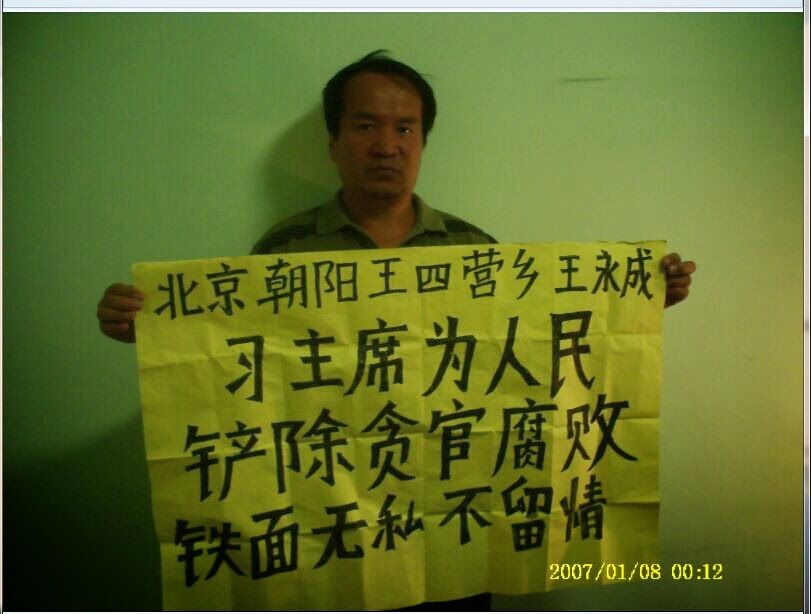 北京朝阳王四营乡王永成
习主席为人民
铲除贪官腐败
铁面无私不留情
2007/01/08 00:12